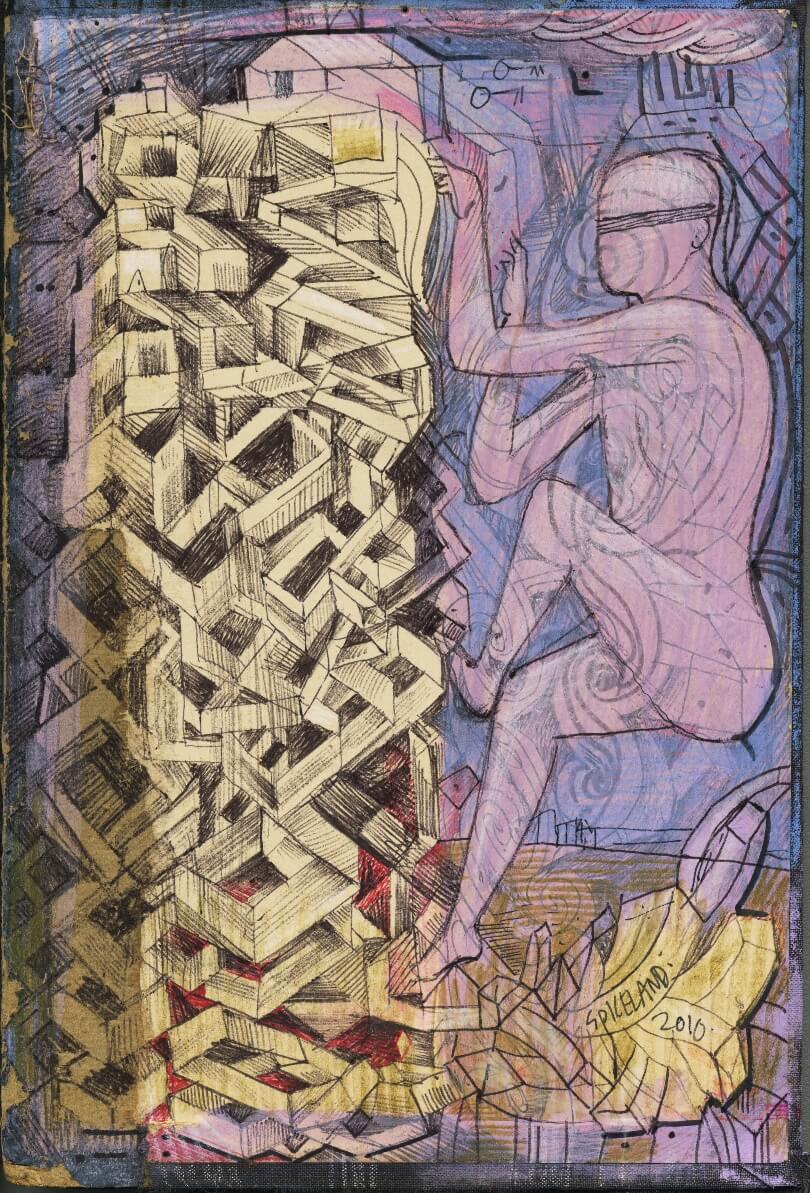 SPICELAND
2010.